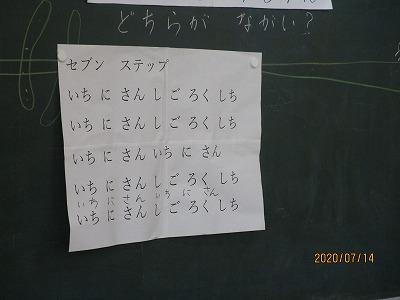 どちらが ながい?
セブン ステップ
いち に さん し ご ろく しち
いち に さん し ご ろく しち
いち に さん いち に さん
いち に さん し ご ろく しち
いち に さん いち に さん
いち に さん し ご ろく しち
2020/07/14